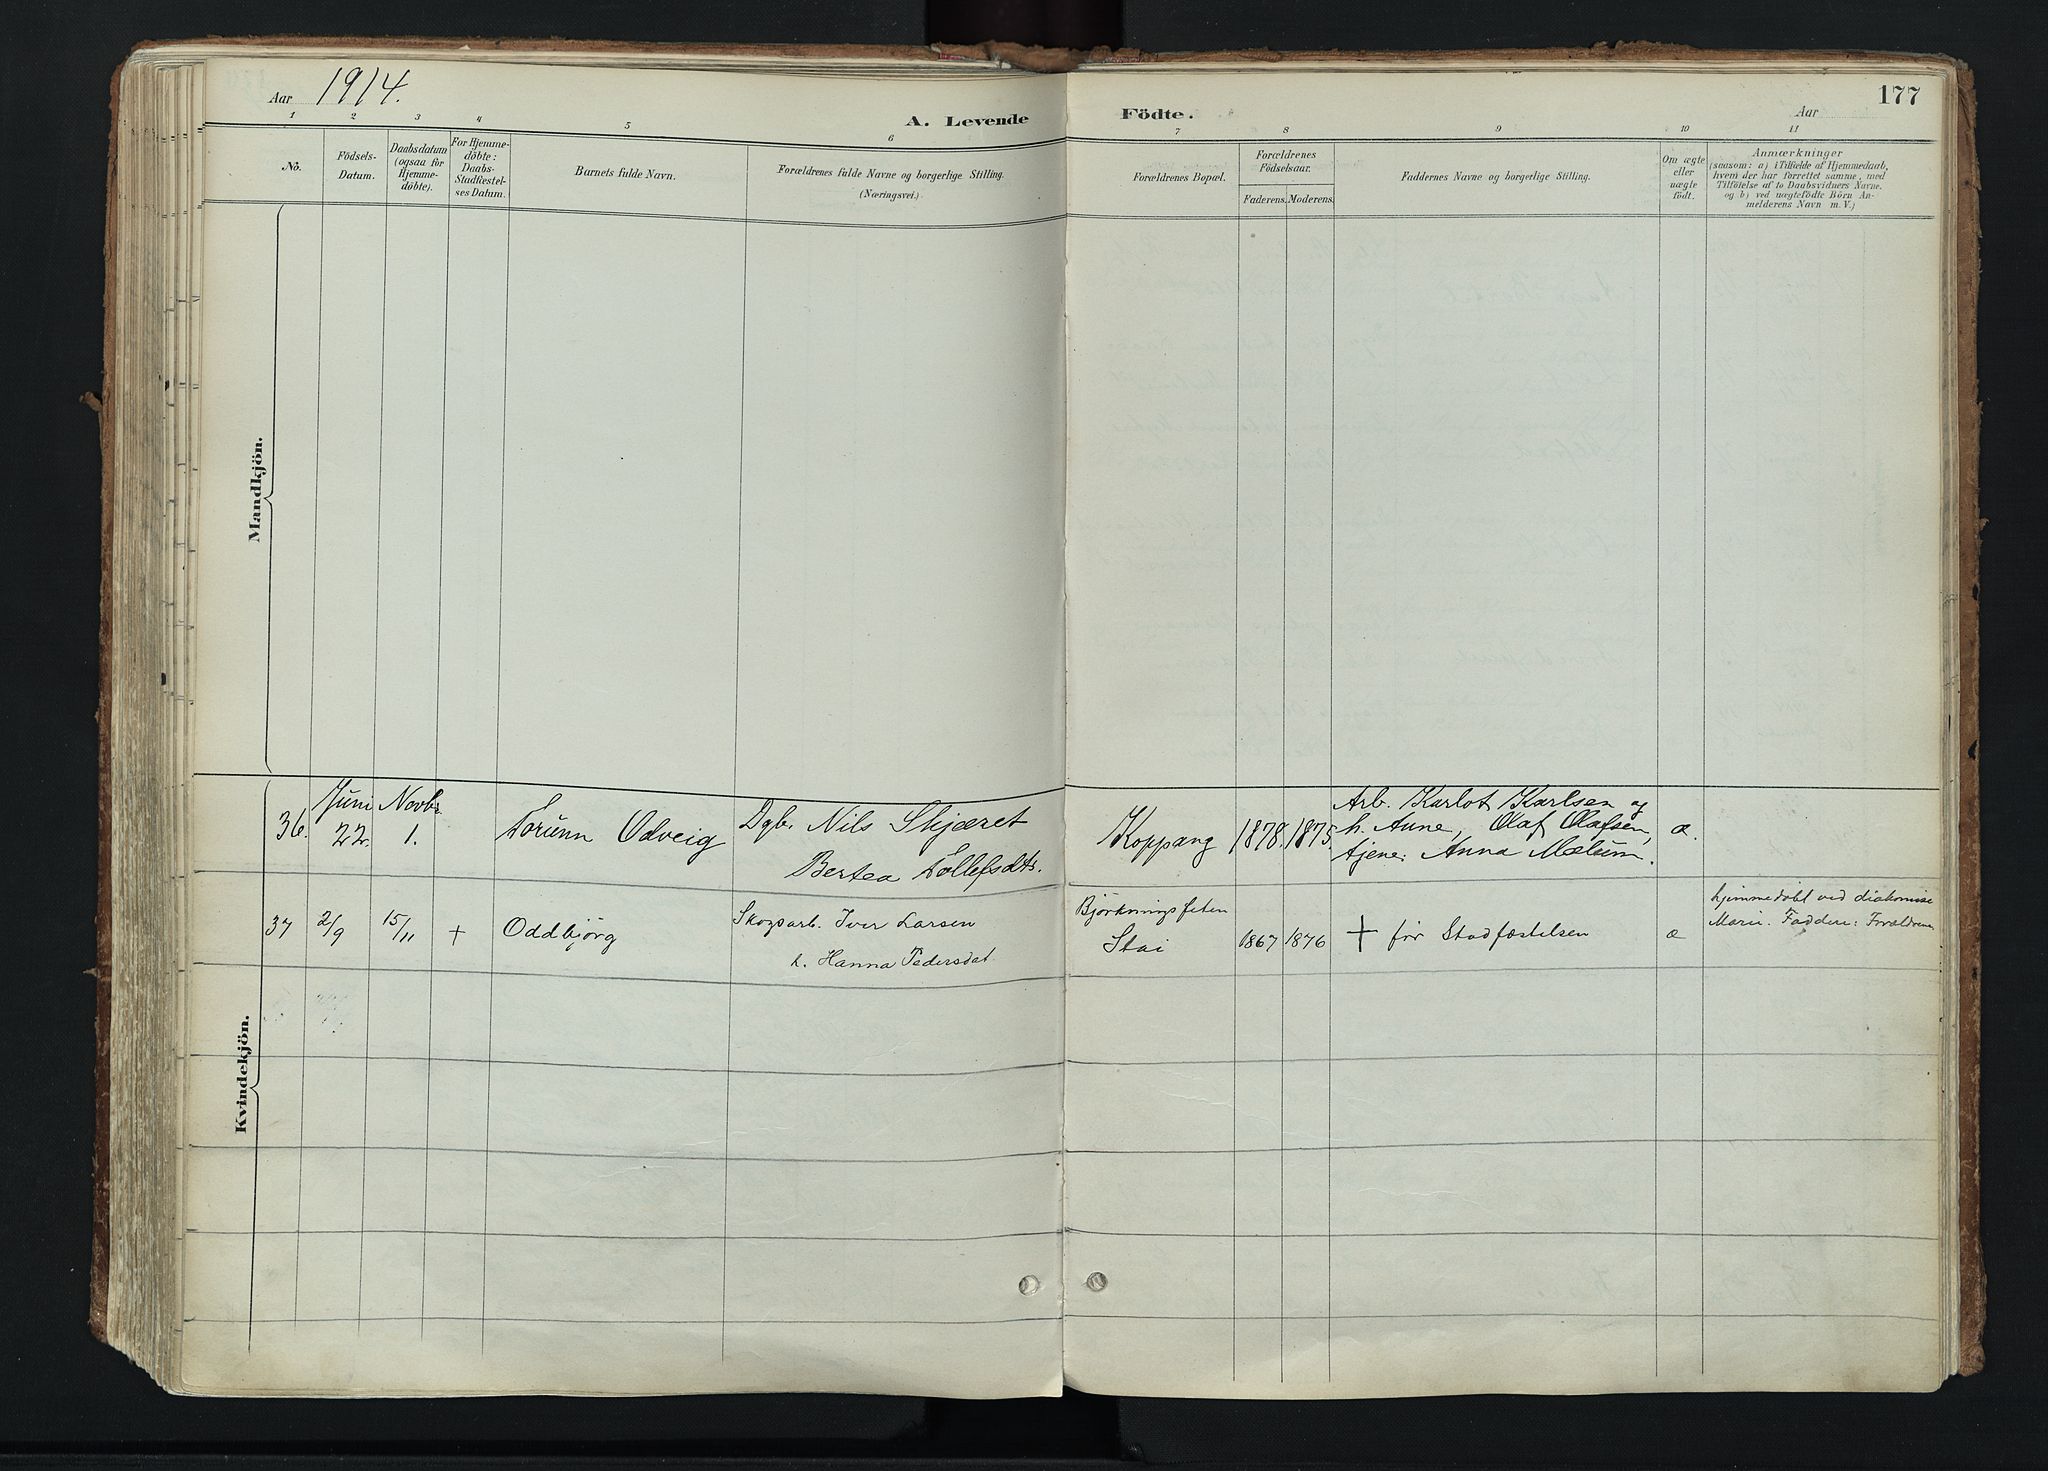 Aar 1914.
A. Levende Födte.
Aar
177
1 2 3 4 5 6 7 8 9 10 11
No.
Födsels-
Datum.
Daabsdatum
(ogsaa for
Hjemme-
døbte).
For Hjemme-
døbte:
Daabs-
Stadfæstel-
ses Datum.
Barnets fulde Navn.
Forældrenes fulde Navne og borgerlige Stilling.
(Næringsvei.)
Forældrenes Bopæl.
Forældrenes
Födselsaar.
Faderens. Moderens.
Faddernes Navne og borgerlige Stilling.
Om ægte
eller
uægte
födt.
Anmærkninger
(saasom: a) i Tilfælde af Hjemmedaab,
hvem der har forrettet samme, med
Tilföielse af to Daabsvidners Navne.
og b) ved uægtefödte Börn An-
melderens Navn m. V.)
Mandkjön.
Kvindekjön.
36. Juni 22. Novbr. 1. Torunn Odveig
Dgb. Nils Skjæret
Bertea Tollefsdtr.
Koppang 1878. 1875.
Arb. Karlot Karlsen og
h. Anne, Olaf Olafsen,
tjene: Anna Mælum.
æ.
37 2/9 15/11 + Oddbjörg
Skogsarb. Iver Larsen
h. Hanna Pedersdat.
Björkningsfeten
Stai
1867 1876 + før Stadfæstelsen æ
hjemmedøbt ved diakonisse
Marie. Faddere: Forældrene